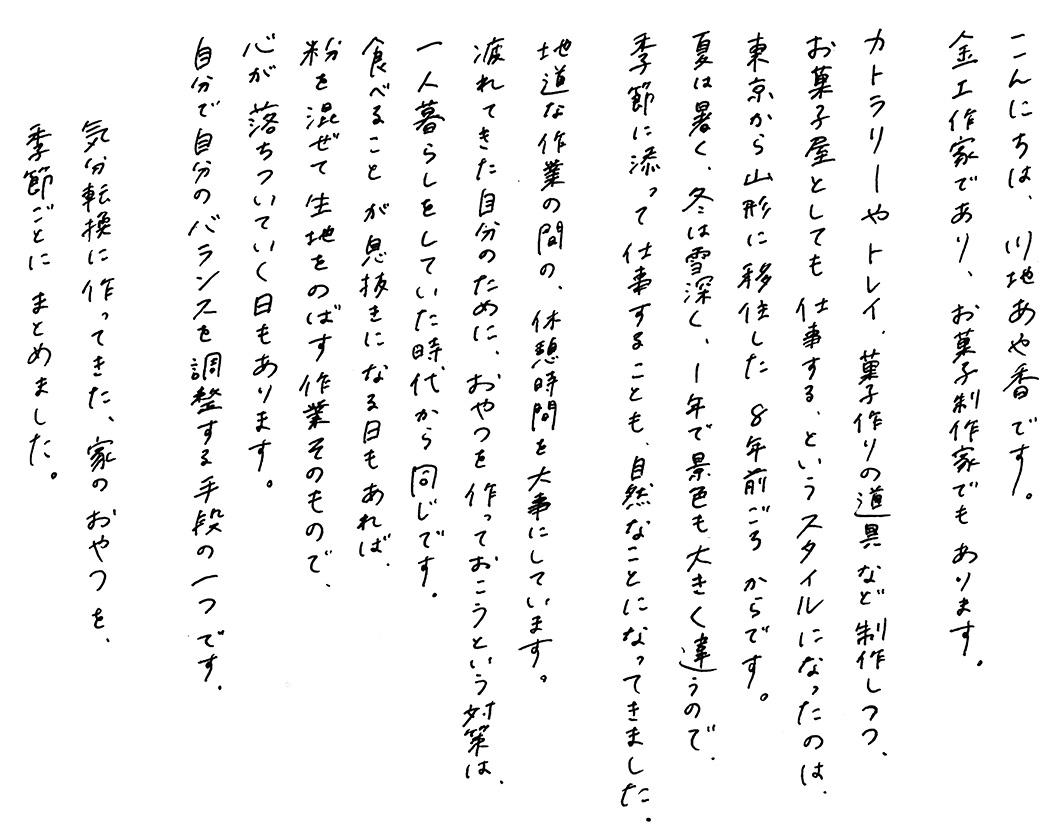 こんにちは、川地あや香です。
金工作家であり、お菓子制作家でもあります。
カトラリーやトレイ、菓子作りの道具など制作しつつ、
お菓子屋としても仕事する、というスタイルになったのは、
東京から山形に移住した8年前ごろからです。
夏は暑く、冬は雪深く、1年で景色も大きく違うので、
季節に添って仕事することも、自然なことになってきました。
地道な作業の間の、休憩時間を大事にしています。
疲れてきた自分のために、おやつを作っておこうという対策は、
一人暮らしをしていた時代から同じです。
食べることが息抜きになる日もあれば、
粉を混ぜて生地をのばす作業そのもので、
心が落ちついていく日もあります。
自分で自分のバランスを調整する手段の一つです。
気分転換に作ってきた、家のおやつを、
季節ごとにまとめました。